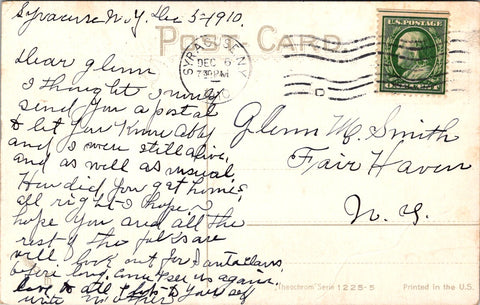 Syracuse N.Y. Dec 5-1910.
POST CARD
U.S. POSTAGE
SYRACUSE, N.Y.
DEC 6
730 PM
Dear Glenn
I thought I would
send you a postal
to let you know
and I were still alive,
and as well as usual,
How did you get home,
all right I hope I
hope you and all the
rest of the folks are
well look out for Santa Claus
before long, come & see us again.
love to all & lots to your self
write
Glenn M. Smith
Fair Haven
N. Y.
"Theochrom" Serie 1225-5
Printed in the U.S.